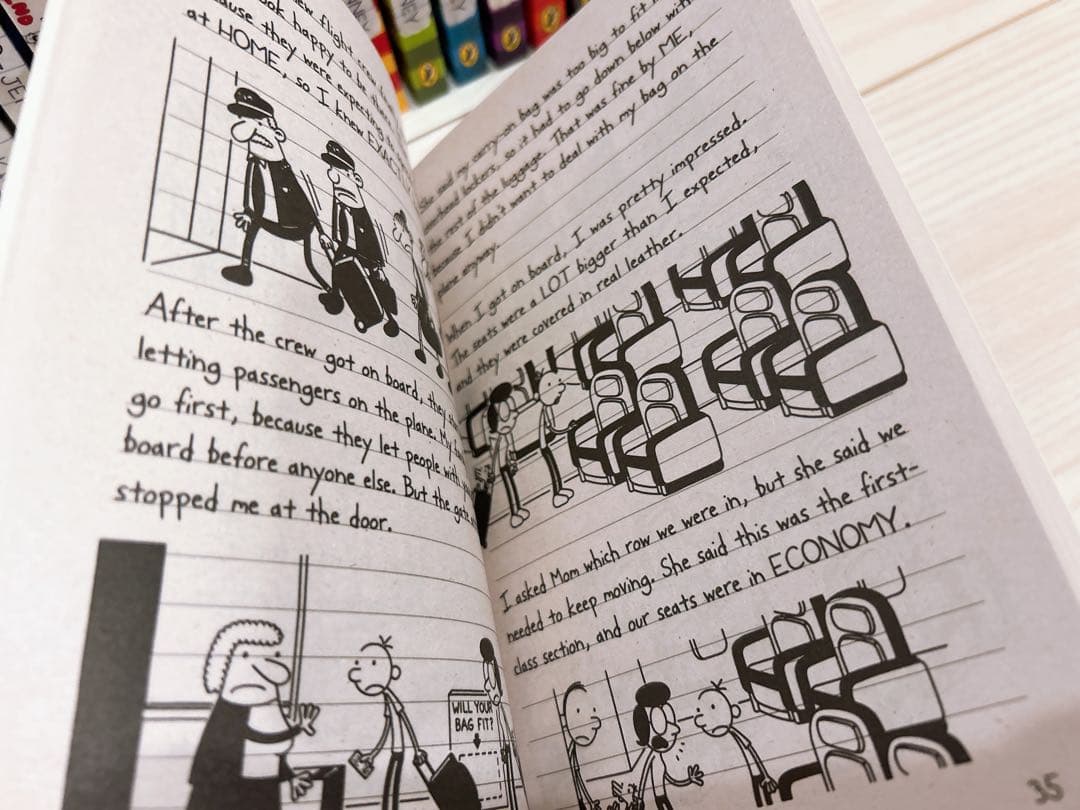 new flight
look happy to be
because they were expecting
at HOME, so I knew
After the crew got on board, they
letting passengers on the plane. My
go first, because they let people with
board before anyone else. But the gate
stopped me at the door.
WILL YOUR
BAG FIT?
She said my carry-on bag was too big to fit
overhead lockers, so it had to go down below with
the rest of the luggage. That was fine by ME,
because I didn't want to deal with my bag on the
plane anyway.
When I got on board, I was pretty impressed.
The seats were a LOT bigger than I expected,
and they were covered in real leather.
I asked Mom which row we were in, but she said we
needed to keep moving. She said this was the first-
class section, and our seats were in ECONOMY.
35